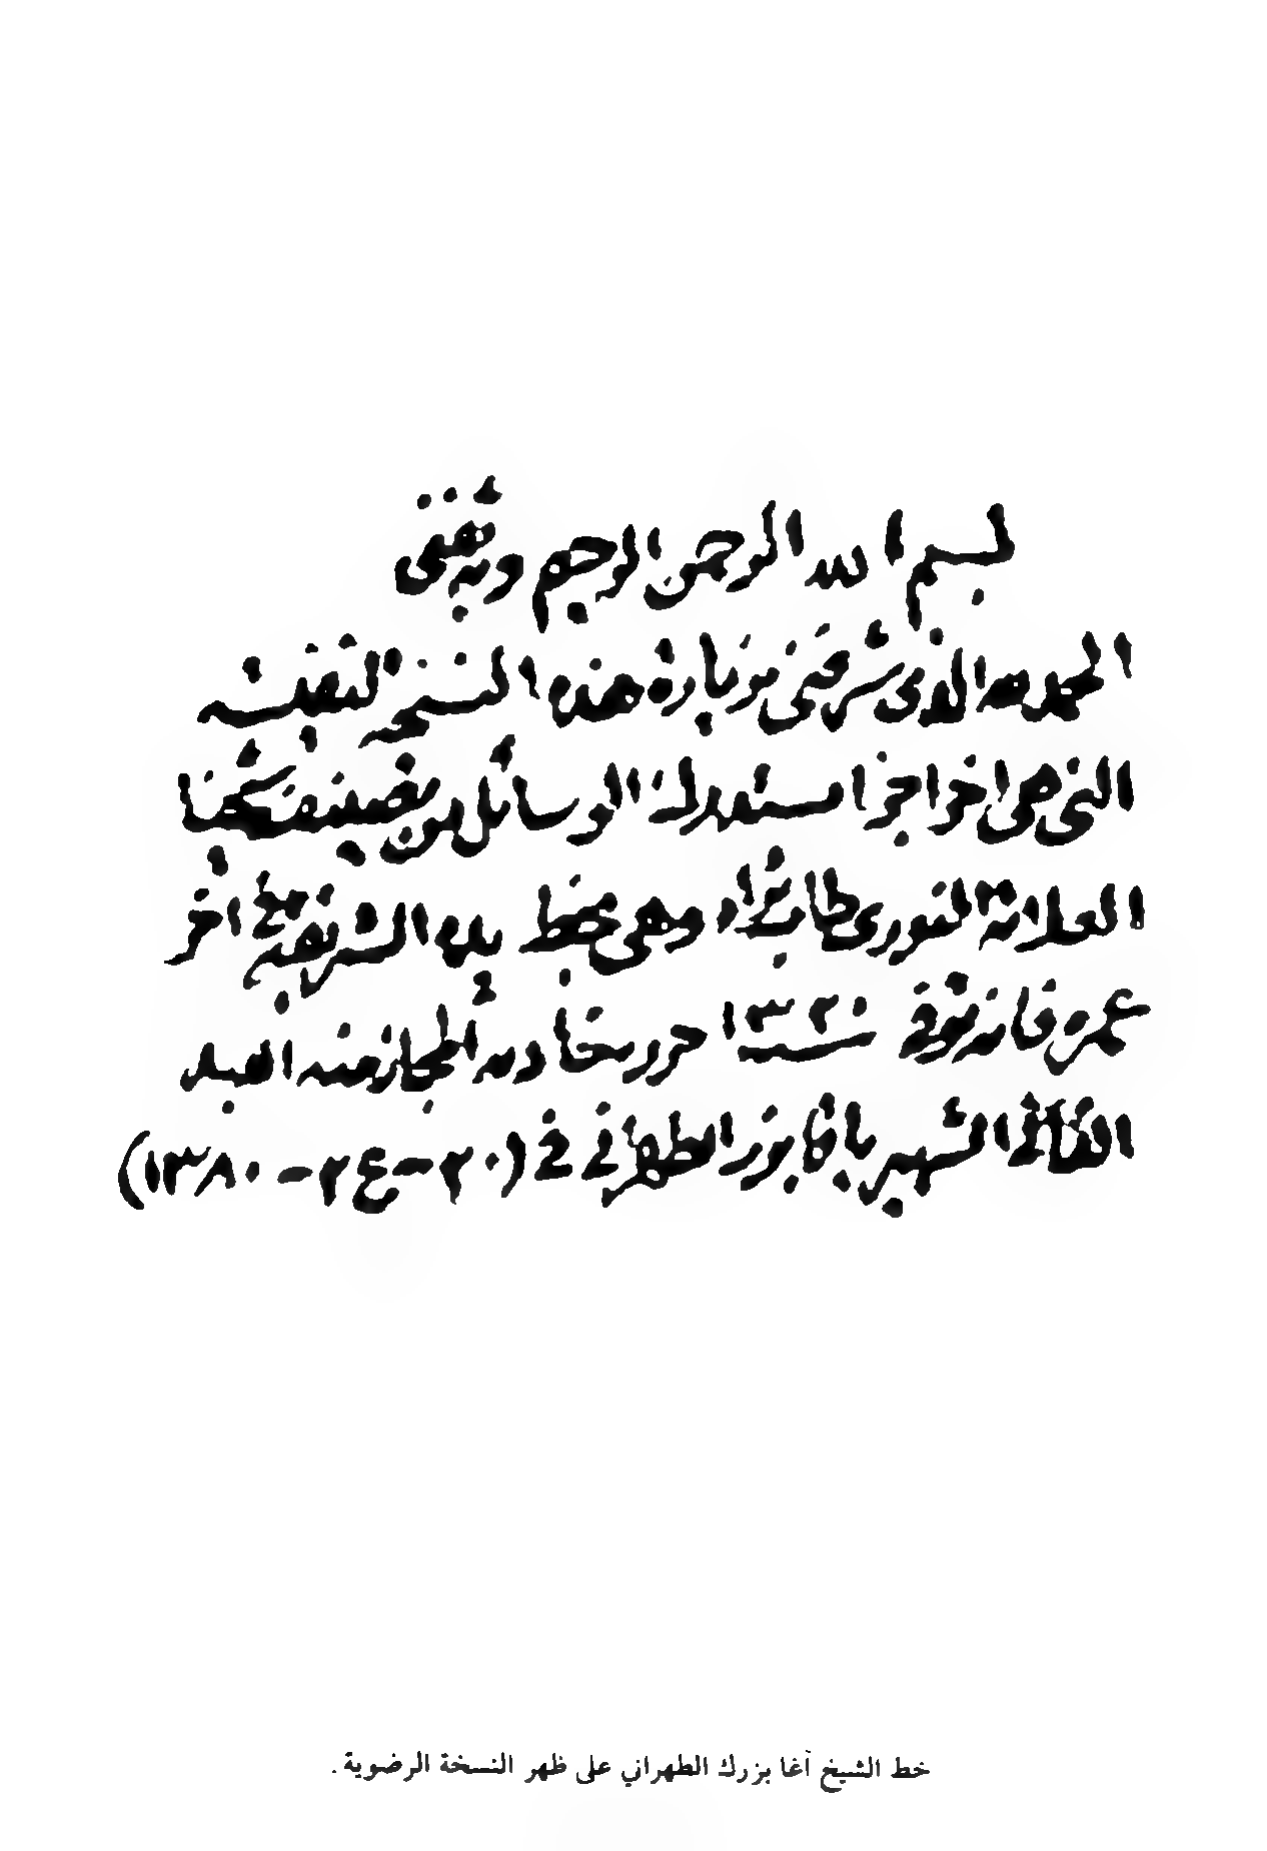 بسم الله الرحمن الرحيم وبه ثقتى
الحمد لله الذى شرفنى بزيارة هذه النسخة النفيسة
التى هى اخر اجزا مستدرك الوسائل من تصنيف شيخنا
العلامة النورى طاب ثراه وهى بخط يده الشريفة فى اخر
عمره فانه توفى سنة ١٣٢٠ حرره بيمناه المجاز منه العبد
الفانى الشهير باقا بزرك الطهرانى فى (٢٠-ع٢-١٣٨٠)
خط الشيخ آغا بزرك الطهراني على ظهر النسخة الرضوية .